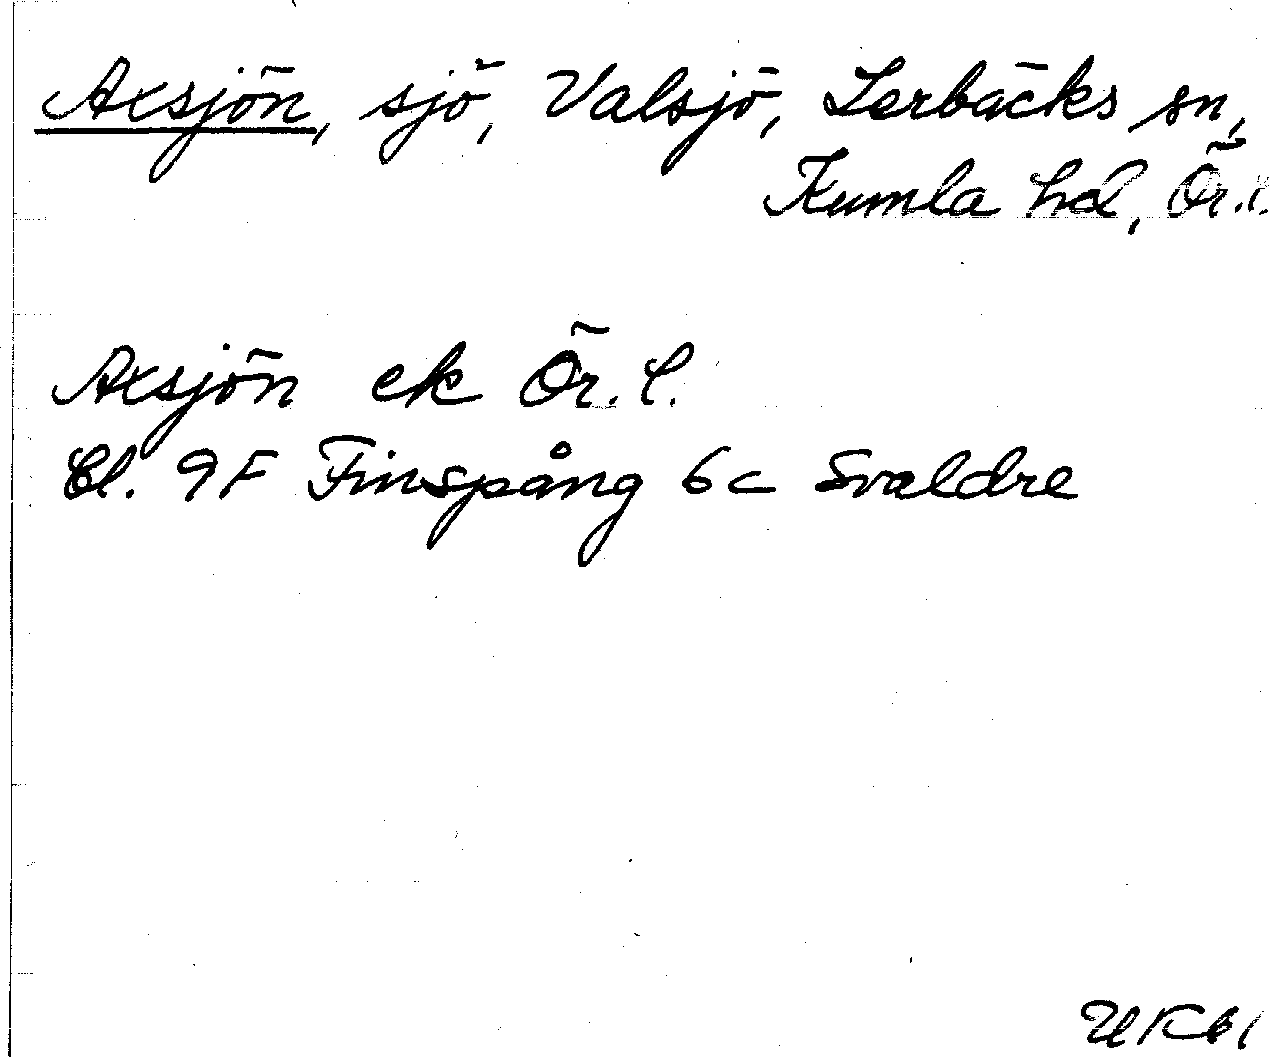 Axsjön, sjö, Valsjö, Lerbäcks sn,
Kumla hd, Ör.l.
Axsjön ek Ör.l.
Bl. 9F Finspång 6c Svaldre